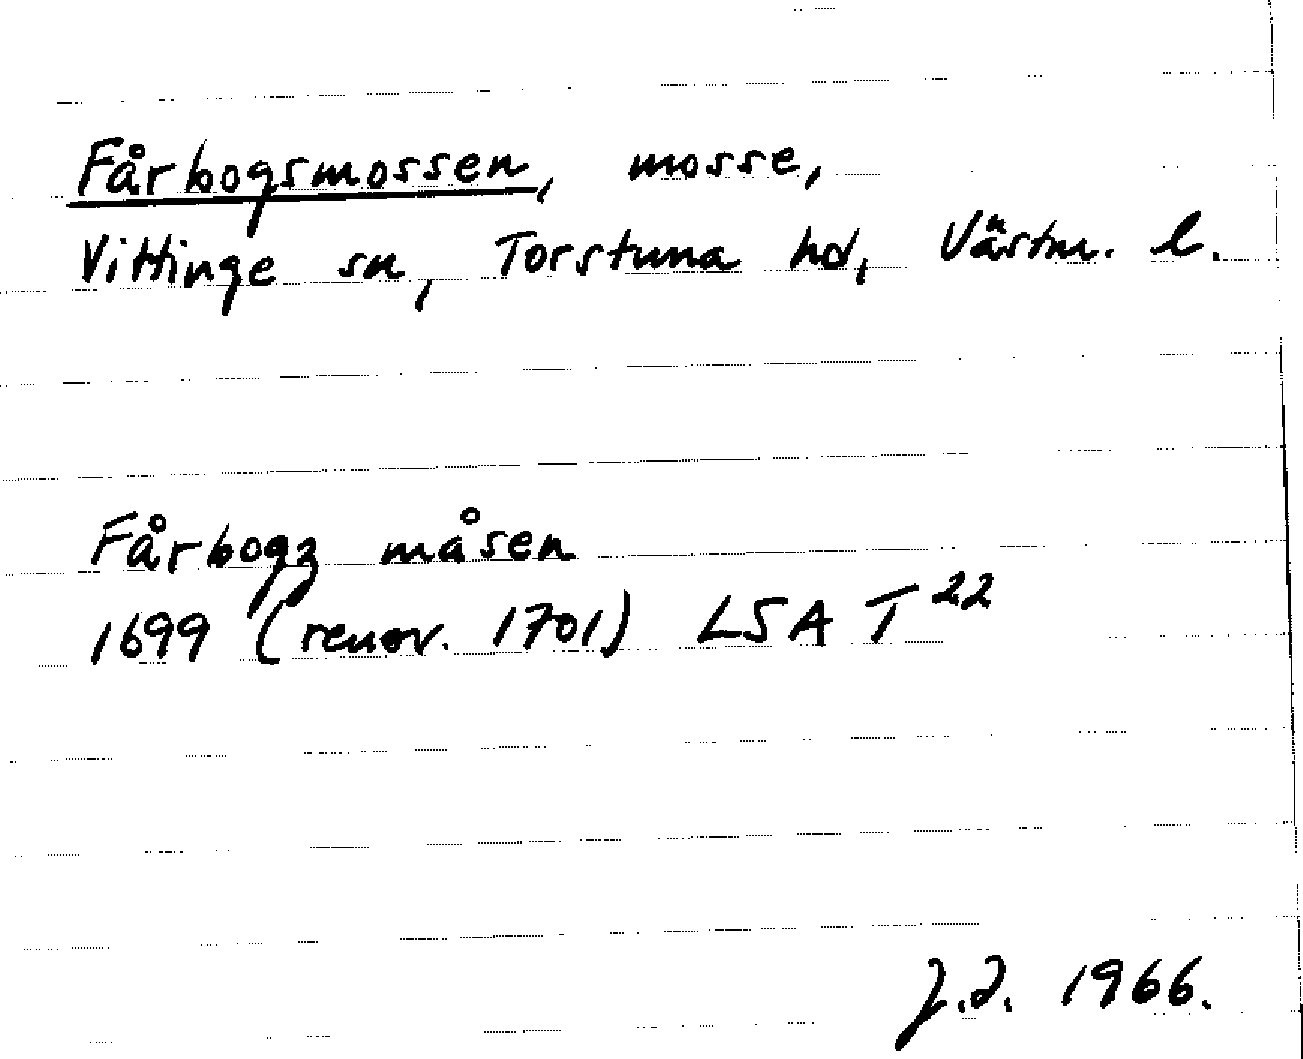 Fårbogsmossen, mosse,
Vittinge sn, Torstuna hd, Västm. l.
Fårbogz måsen
1699 (renov. 1701) LSA T 22
1966.